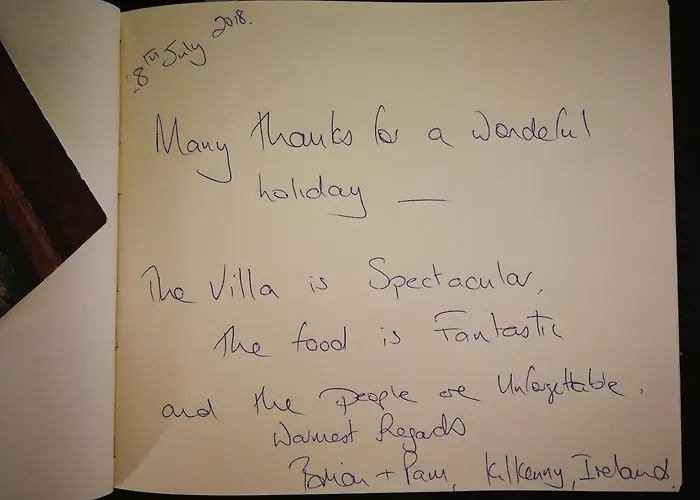 8TH July 2018.
Many thanks for a wonderful
holiday —
The Villa is Spectacular,
The food is Fantastic
and the People are Unforgettable.
Warmest Regards
Brian + Pam, Kilkenny, Ireland.